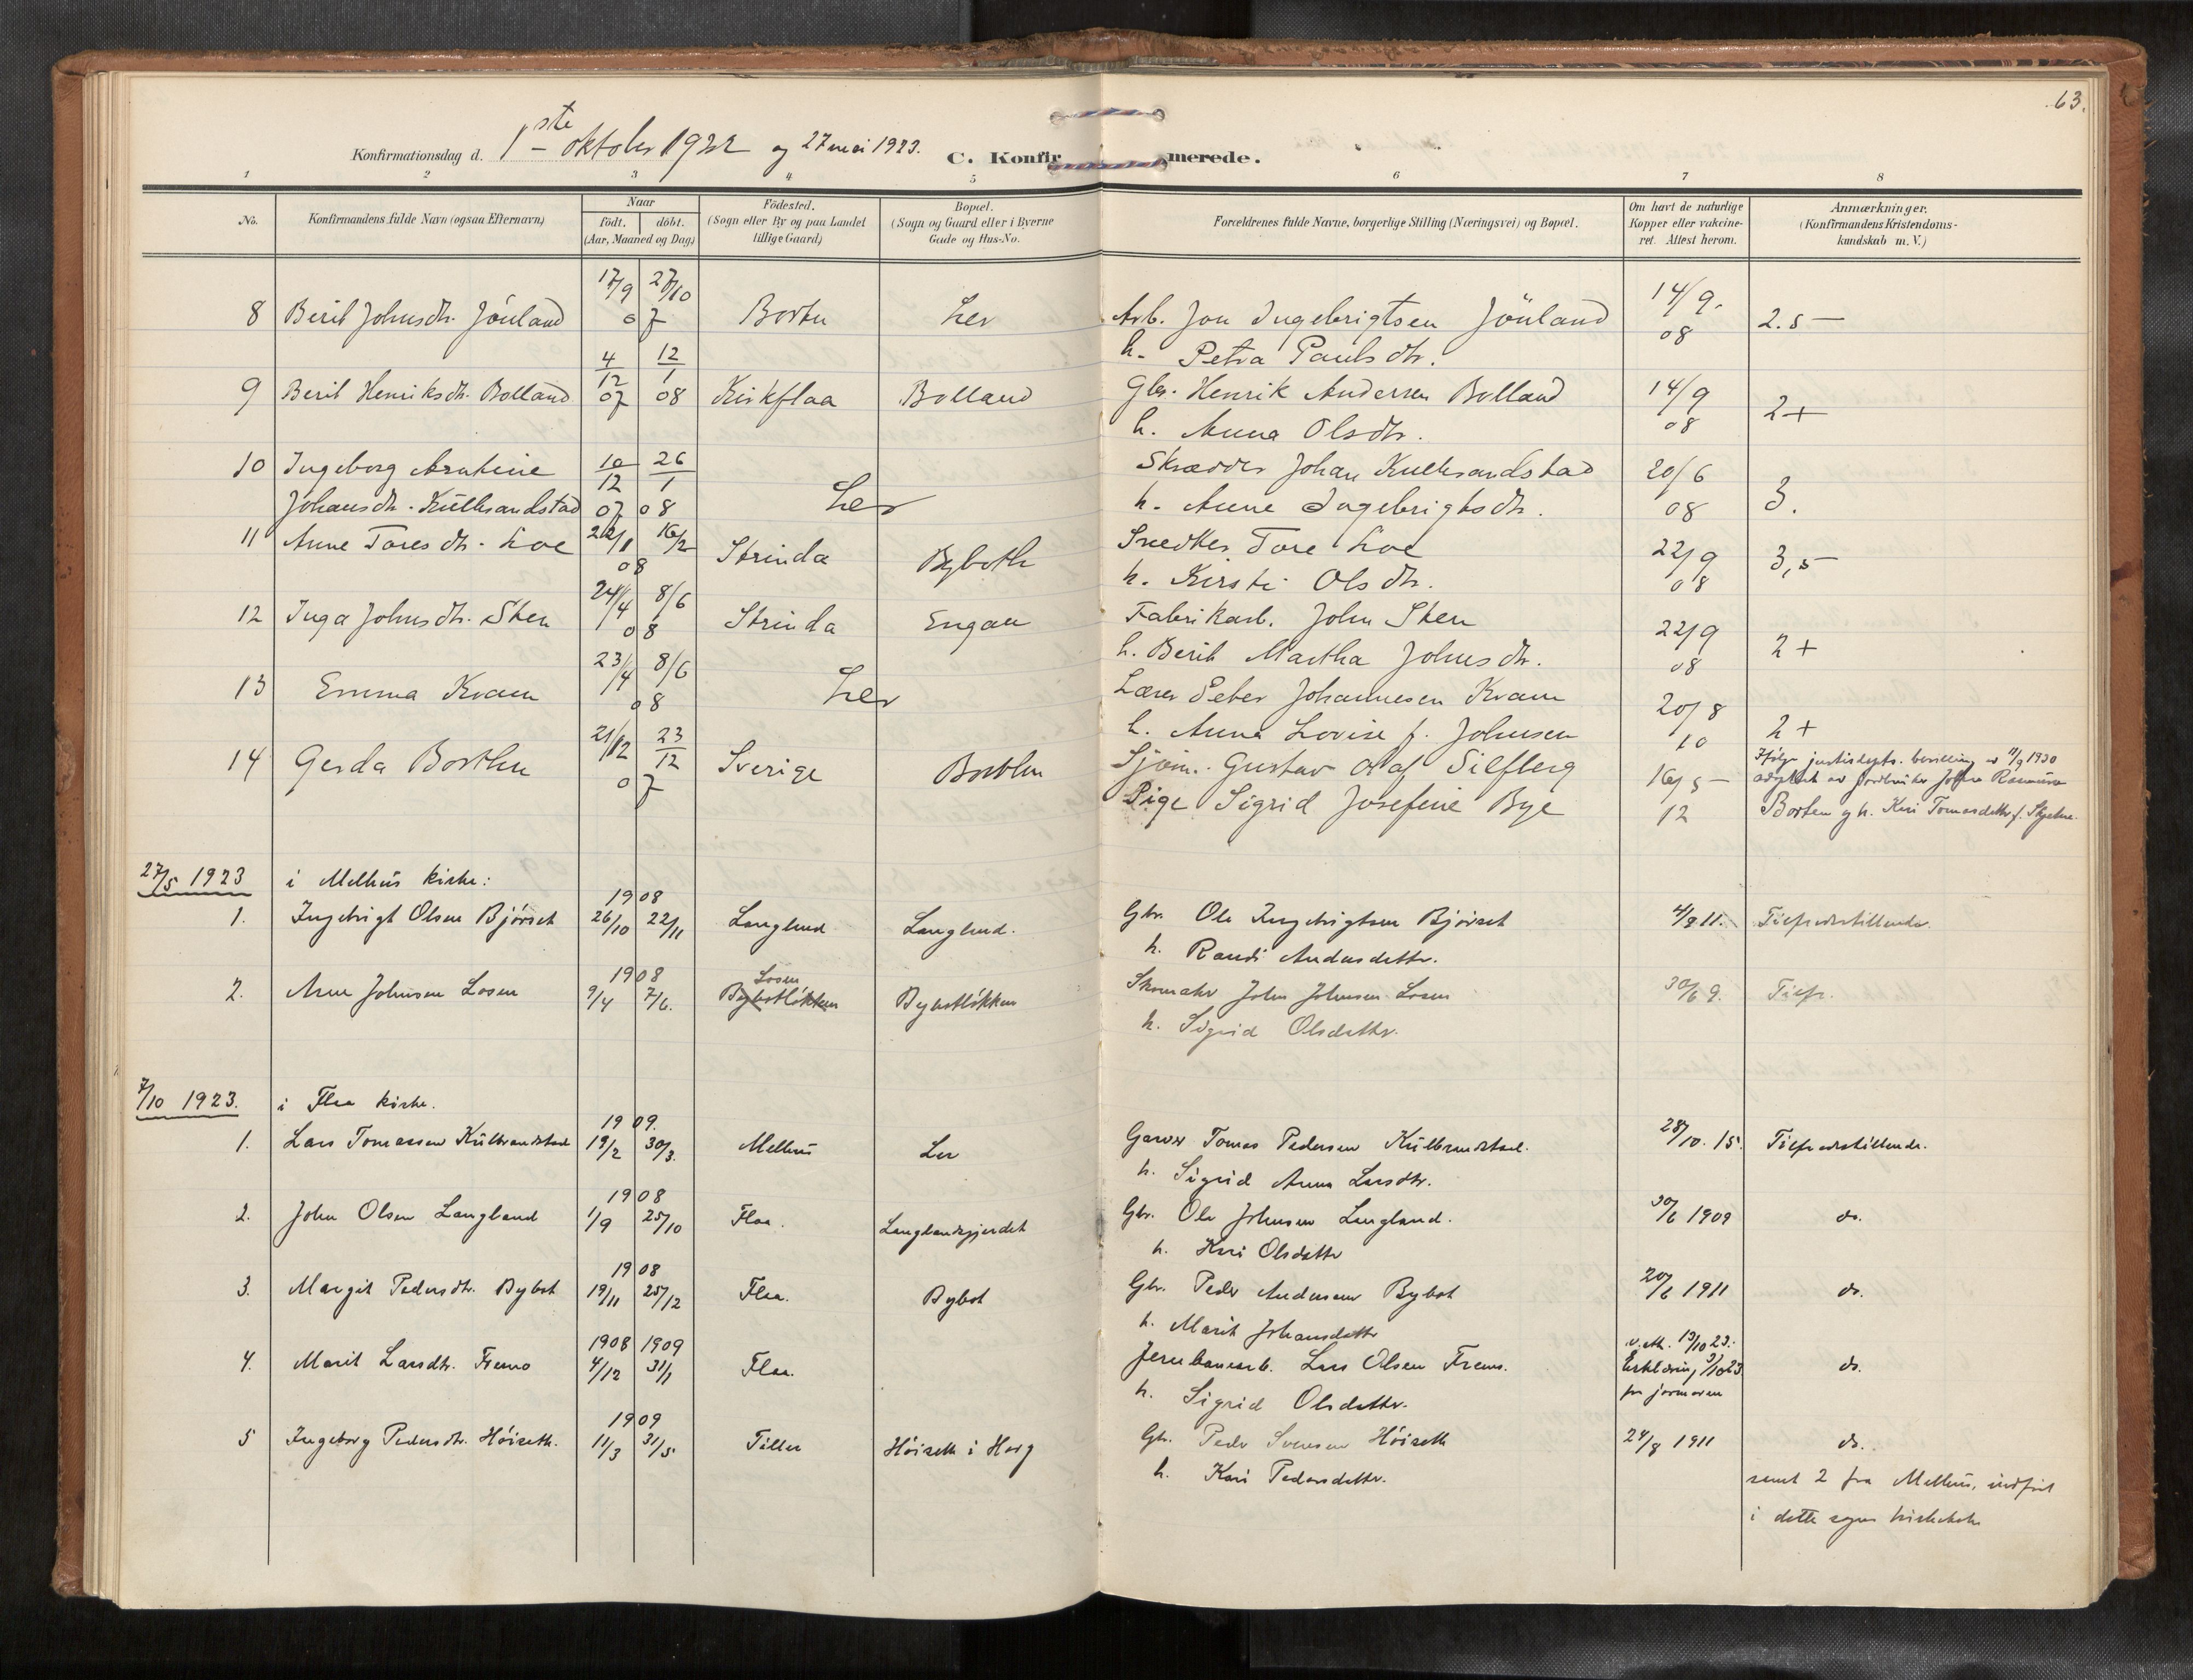 63.
Konfirmationsdag d. 1ste oktober 1922 og 27 mai 1923. C. Konfirmerede.
1 2 3 4 5 6 7 8
No.
Konfirmandens fulde Navn (ogsaa Efternavn)
Naar
födt. döbt.
(Aar, Maaned og Dag)
Födested.
(Sogn eller By og paa Landet
tillige Gaard)
Bopæl.
(Sogn og Gaard eller i Byerne
Gade og Hus-No.
Forældrenes fulde Navne, borgerlige Stilling (Næringsvei) og Bopæl.
Om havt de naturlige
Kopper eller vakcine-
ret. Attest herom.
Anmærkninger.
(Konfirmandens Kristendoms-
kundskab m. V.)
8 Berit Johnsdtr. Jönland 17/9 27/10 07 Borten Ler Arb. Jon Ingebrigtsen Jönland 14/9 08 2.5 —
h. Petra Paulsdtr.
9 Berit Henriksdtr. Bolland 4/12 07 12/1 08 Kirkflaa Bolland Gbr. Henrik Andersen Bolland 14/9 08 2+
h. Anna Olsdtr.
10 Ingeborg 10/12 07 26/1 08 Ler Skrædder Johan Kulbrandstad 20/6 08 3.
Johansdtr. Kulbrandstad h. Anne Ingebrigtsdtr.
11 Anne Toresdtr. Loe 22/1 16/2 08 Strinda Bybotn Snedker Tore Loe 22/9 08 3,5 —
h. Kirsti Olsdtr.
12 Inga Johnsdtr. Sten 24/4 8/6 08 Strinda Engan Fabrikarb. John Sten 22/9 08 2+
h. Berit Martha Johnsdtr.
13 Emma Kvam 23/4 8/6 08 Ler Lærer Peter Johannesen Kvam 20/8 10 2+
h. Anna Lovise f. Johnsen
14 Gerda Borthen 21/12 23/12 07 Sverige Borthen Sjöm. Gustav Silfberg 16/5 — 12
Pige Sigrid Josefine Bye
Ifølge justisdepts. bevilling av 11/9 1930
adoptert av Johan
Borten og h. Kari Tomasdatter f. Skjetne.
27/5 1923 i Melhus kirke:
1. Ingebrigt Olsen Bjørset 1908 26/10 22/11 Langlund Langlund. Gbr. Ole Ingebrigtsen Bjørset 4/9 11. Tilfredsstillende.
h. Randi Andersdattr.
2. Arne Johnsen Losen 1908 9/4 7/6. Losen Bybotløkken Bybotløkken Skomaker John Johnsen Losen 30/6 9. Tilfr.
h. Sigrid Olsdattr.
7/10 1923. i Flaa kirke.
1. Lars Tomassen Kulbrandstad 1909. 19/2 30/3. Melhus Ler Garver Tomas Pedersen Kulbrandstad. 28/10. 15. Tilfredsstillende.
h. Sigrid Anna Larsdtr.
2. John Olsen Langland 1908 1/9 25/10 Flaa. Langlandsgjerdet Gbr. Ole Johnsen Langland. 30/6 1909 do.
h. Kari Olsdattr
3. Margit Pedersdtr. Bybot 1908 19/11 25/12 Flaa. Bybot Gbr. Peder Andersen Bybot 20/6 1911 do.
h. Marit Johansdattr
4. Marit Larsdtr. Fremo 1908 1909 4/12 31/1 Flaa. Jernbanearb. Lars Olsen Fremo. v.att. 13/10 23. do.
h. Sigrid Olsdattr. Erklæring 3/10 23
fra jormoren
5 Ingeborg Pedersdtr. Høiseth. 1909 11/3 31/5 Tiller Høiseth i Horg Gbr. Peder Svensen Høiseth 24/8 1911 do.
h. Kari Pedersdattr.
samt 2 fra Melhus, indført
i dette sogns kirkebok